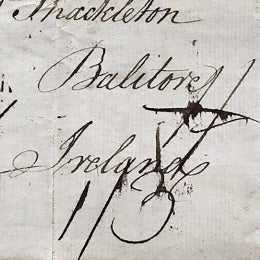 Shackleton
Balitore
Ireland
1/3